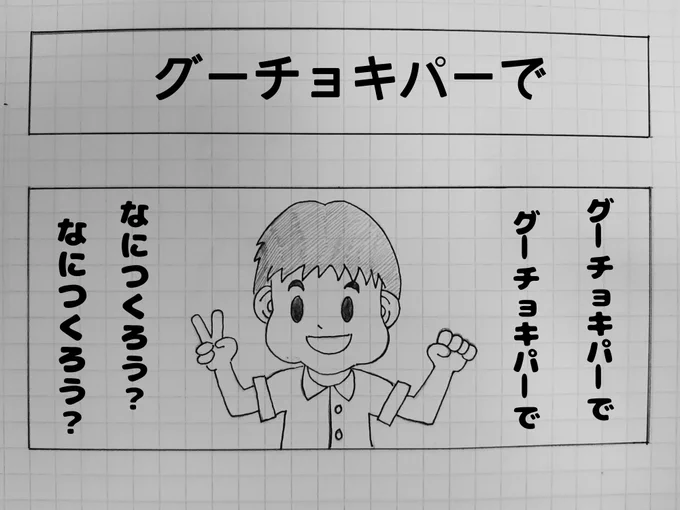 グーチョキパーで
グーチョキパーで
グーチョキパーで
なにつくろう？
なにつくろう？